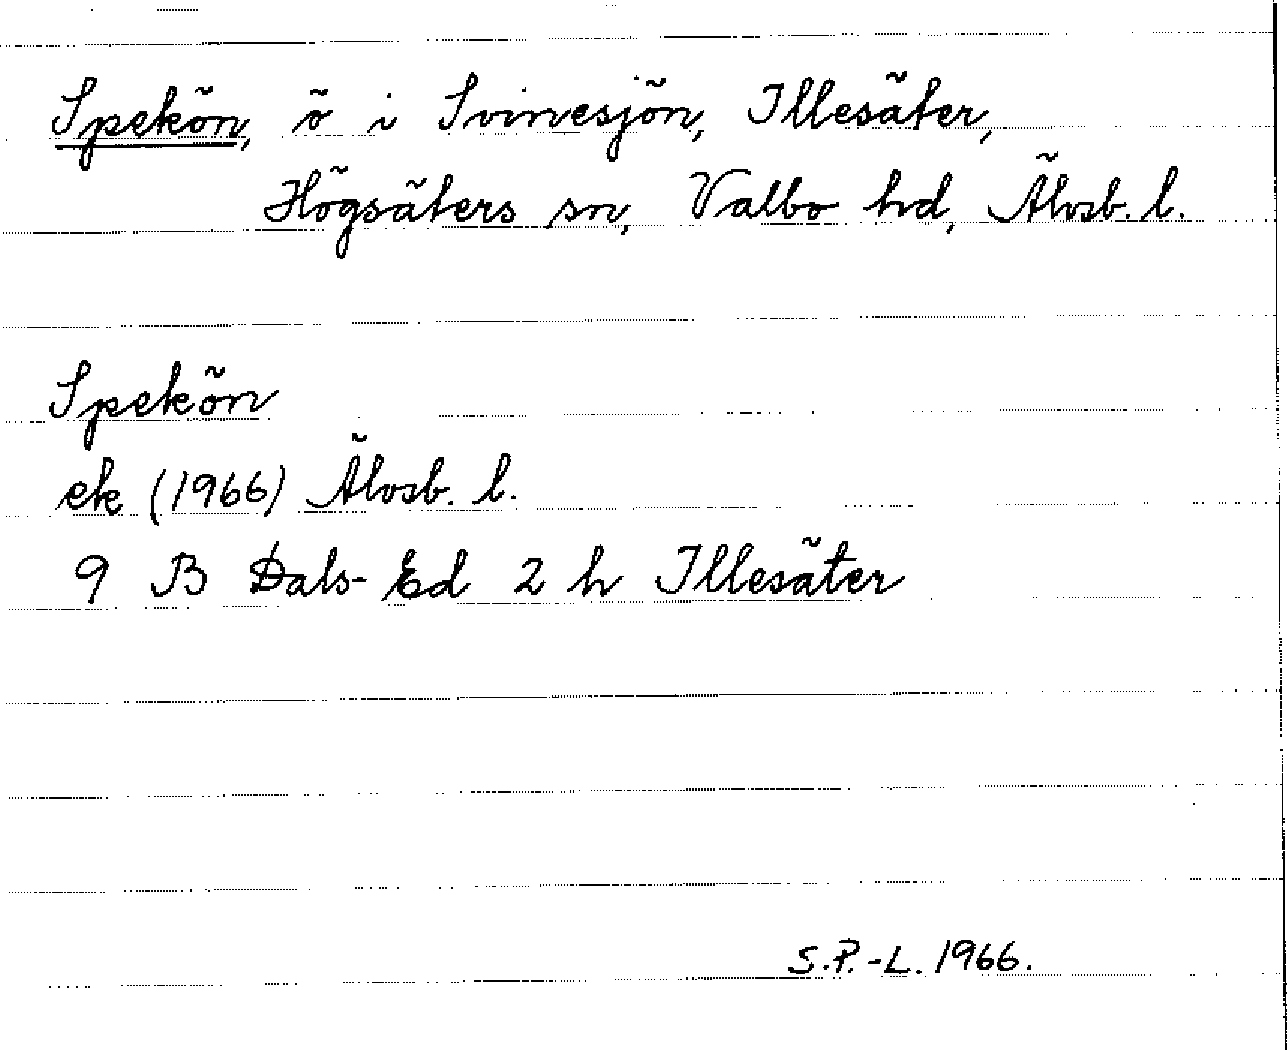 Spekön, ö i Svinesjön, Illesäter,
Högsäters sn, Valbo hd, Älvsb. l.
Spekön
ek (1966) Älvsb. l.
9 B Dals-Ed 2 h Illesäter
S.P.-L. 1966.